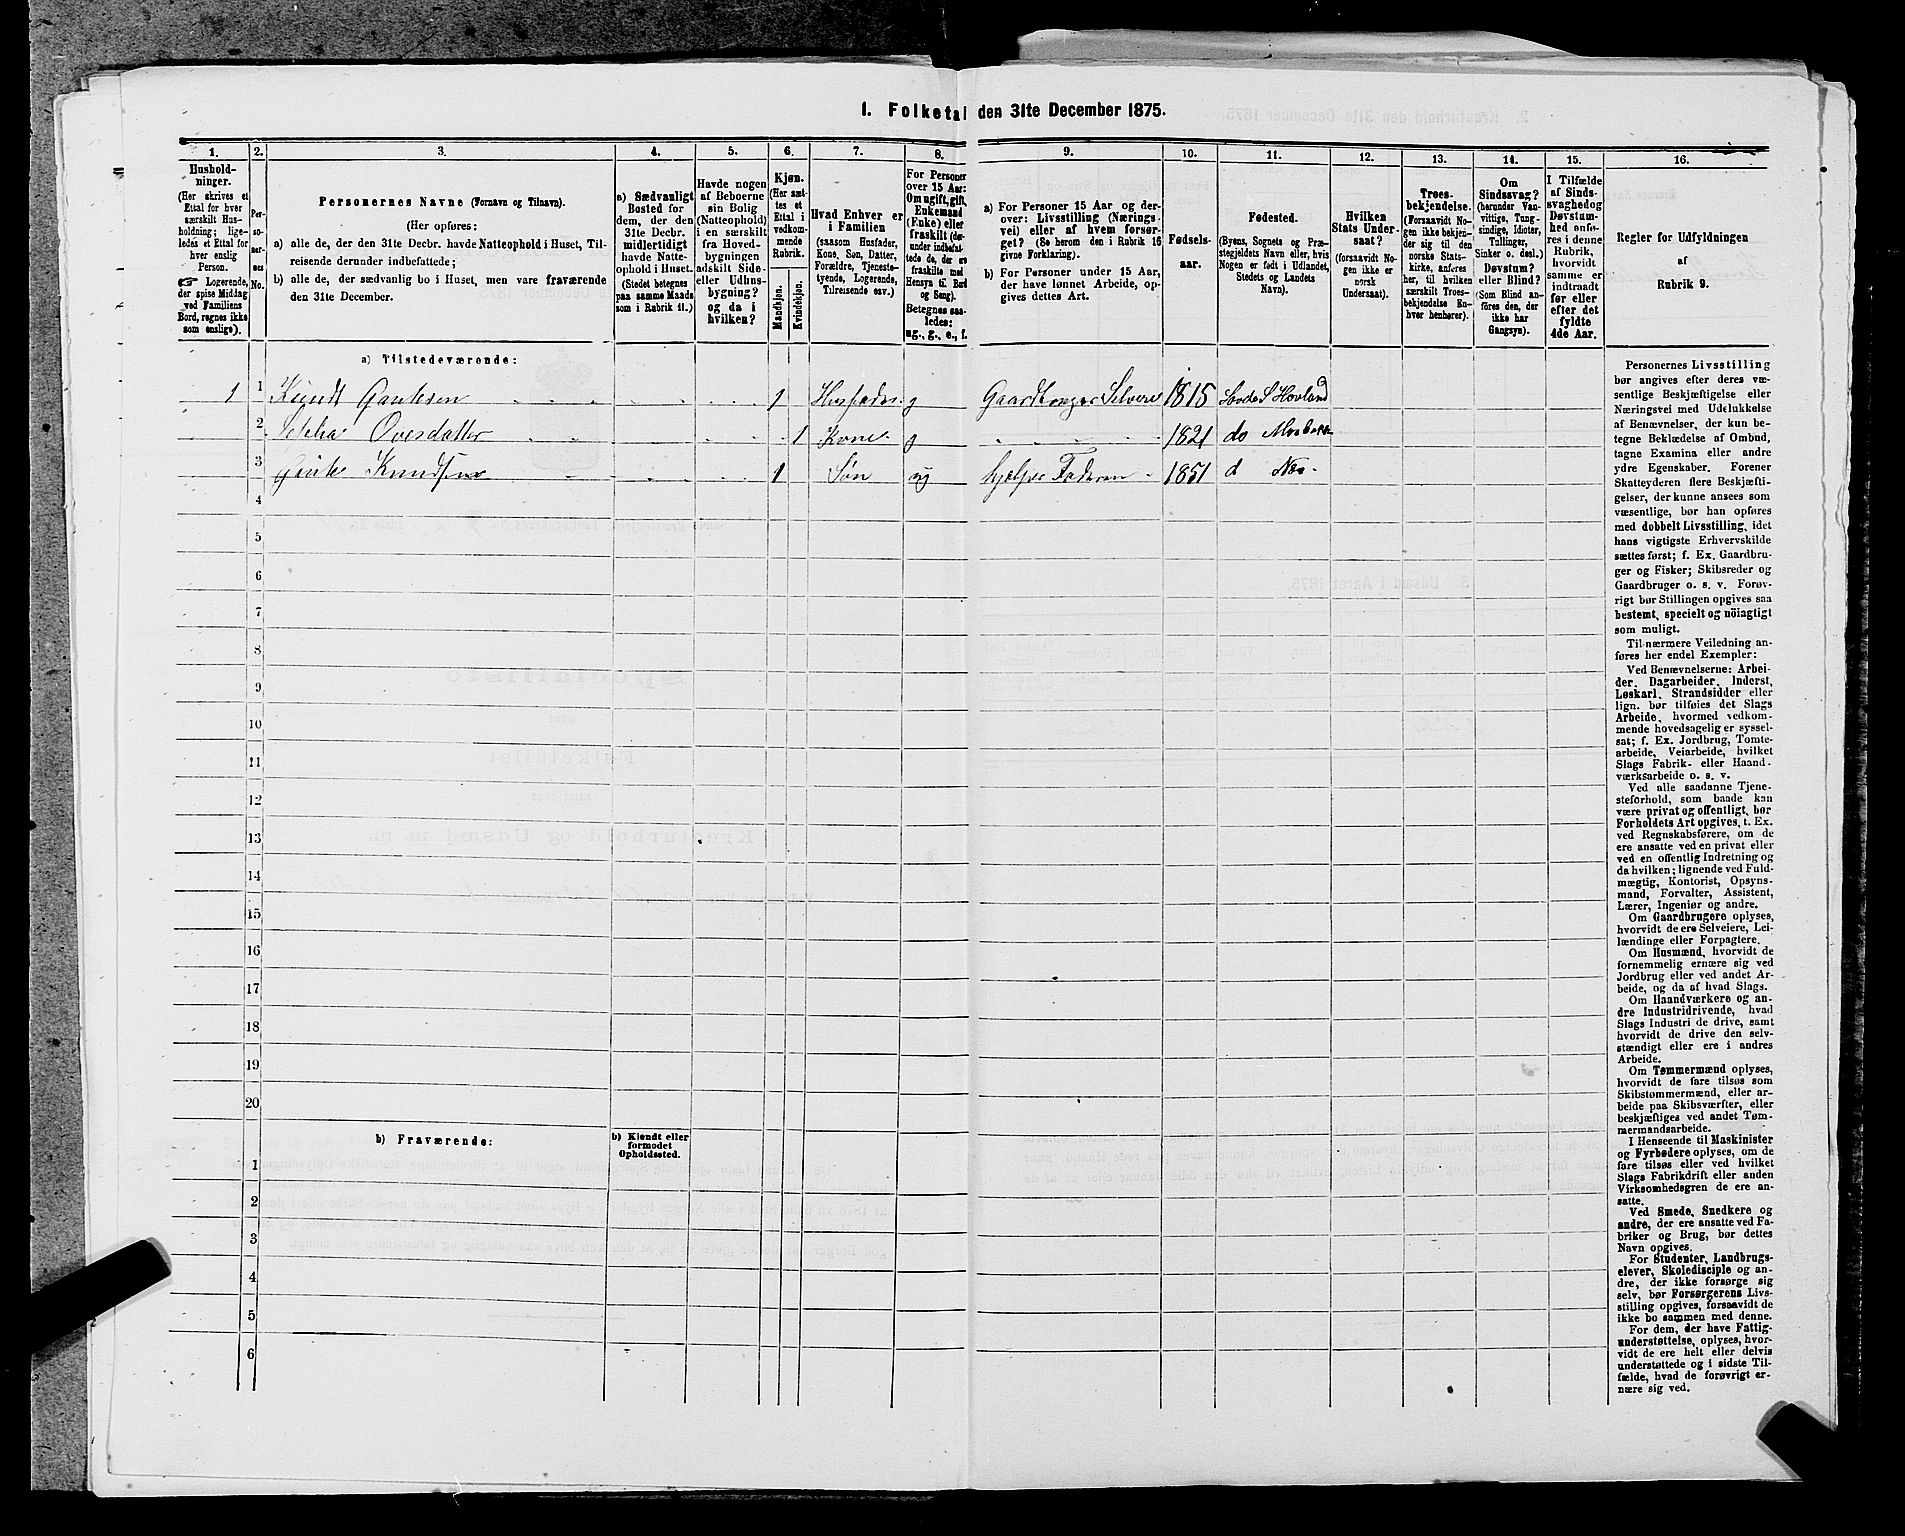 1. Folketal den 31te December 1875.
1.
Hushold-
ninger.
(Her skrives et
Ettal for hver
særskilt Hus-
holdning; lige-
ledes et Ettal for
hver enslig
Person.
☞ Logerende,
der spise Middag
ved Familiens
Bord, regnes ikke
som enslige).
2.
Per-
so-
ner-
nes
No.
3.
Personernes Navne (Fornavn og Tilnavn).
(Her opføres:
a) alle de, der den 31te Decbr. havde Natteophold i Huset, Til-
reisende derunder indbefattede;
b) alle de, der sædvanlig bo i Huset, men vare fraværende
den 31te December.
4.
a) Sædvanligt
Bosted for
dem, der den
31te Decbr.
midlertidigt
havde Natte-
ophold i Huset.
(Stedet betegnes
paa samme Maade
som i Rubrik 11.)
5.
Havde nogen
af Beboerne
sin Bolig
(Natteophold)
i en særskilt
fra Hoved-
bygningen
adskilt Side-
eller Udhus-
bygning?
og da i
hvilken?
6.
Kjøn.
(Her sæt-
tes et
Ettal i
vedkom-
mende
Rubrik.
Mandkjøn.
Kvindekjøn.
7.
Hvad Enhver er
i Familien
(saasom Husfader,
Kone, Søn, Datter,
Forældre, Tjeneste-
tyende, Logerende,
Tilreisende osv.)
8.
For Personer
over 15 Aar:
Om ugift, gift,
Enkemand
(Enke) eller
fraskilt (der-
under indbefat-
tede de, der ere
fraskilte med
Hensyn til Bord
og Seng).
Betegnes saa-
ledes:
ug., g., e., f.
9.
a) For Personer 15 Aar og der-
over: Livsstilling (Nærings-
vei) eller af hvem forsør-
get? (Se herom den i Rubrik 16
givne Forklaring).
b) For Personer under 15 Aar,
der have lønnet Arbeide, op-
gives dettes Art.
10.
Fødsels-
aar.
11.
Fødested.
(Byens, Sognets og Præ-
stegjeldets Navn eller, hvis
Nogen er født i Udlandet,
Stedets og Landets
Navn).
12.
Hvilken
Stats Under-
saat?
(forsaavidt No-
gen ikke er
norsk
Undersaat).
13.
Troes-
bekjendelse.
(Forsaavidt No-
gen ikke bekjen-
der sig til den
norske Stats-
kirke, anføres
her, til hvilken
særskilt Troes-
bekjendelse En-
hver henhører).
14.
Om
Sindssvag?
(herunder Van-
vittige, Tung-
sindige, Idioter,
Tullinger,
Sinker o. desl.)
Døvstum?
eller Blind?
(Som Blind an-
føres den, der
ikke har
Gangsyn).
15.
I Tilfælde
af Sinds-
svaghed og
Døvstum-
hed anfø-
res i denne
Rubrik,
hvorvidt
samme er
indtraadt
før eller
efter det
fyldte
4de Aar.
16.
Regler for Udfyldningen
af
Rubrik 9.
a) Tilstedeværende:
1 1 Knudt Gautesen 1 Husfader g Gaardbruger Selveier 1815 Hovland
2 Ovesdatter 1 Kone g 1821 do
3 Gaute Knudsen 1 Søn ug hjælper Faderen 1851 d Næs
4
5
6
7
8
9
10
11
12
13
14
15
16
17
18
19
20
b) Fraværende:
b) Kjendt eller
formodet
Opholdssted.
1
2
3
4
5
6
Personernes Livsstilling
bør angives efter deres væ-
sentlige Beskjæftigelse eller
Næringsvei med Udelukkelse
af Benævnelser, der kun be-
tegne Beklædelse af Ombud,
tagne Examina eller andre
ydre Egenskaber. Forener
Skatteyderen flere Beskjæfti-
gelser, der kunne ansees som
væsentlige, bør han opføres
med dobbelt Livsstilling, idet
hans vigtigste Erhvervskilde
sættes først; f. Ex. Gaardbru-
ger og Fisker; Skibsreder og
Gaardbruger o. s. v. Forøv-
rigt bør Stillingen opgives saa
bestemt, specielt og nöiagtigt
som muligt.
Til nærmere Veiledning an-
føres her endel Exempler:
Ved Benævnelserne: Arbei-
der, Dagarbeider, Inderst,
Løskarl, Strandsidder eller
lign. bør tilføies det Slags
Arbeide, hvormed vedkom-
mende hovedsagelig er syssel-
sat; f. Ex. Jordbrug, Tomte-
arbeide, Veiarbeide, hvilket
Slags Fabrik- eller Haand-
værksarbeide o. s. v.
Ved alle saadanne Tjene-
steforhold, som baade kan
være privat og offentligt, bør
Forholdets Art opgives, t. Ex.
ved Regnskabsførere, om de
ere ansatte ved en privat eller
ved en offentlig Indretning og
da hvilken; lignende ved Fuld-
mægtig, Kontorist, Opsyns-
mand, Forvalter, Assistent,
Lærer, Ingeniør og andre.
Om Gaardbrugere oplyses,
hvorvidt de ere Selveiere, Lei-
lændinge eller Forpagtere.
Om Husmænd, hvorvidt de
fornemmelig ernære sig ved
Jordbrug eller ved andet Ar-
beide, og da af hvad Slags.
Om Haandværkere og an-
dre Industridrivende, hvad
Slags Industri de drive, samt
hvorvidt de drive den selv-
stændigt eller ere i andres
Arbeide.
Om Tømmermænd oplyses,
hvorvidt de fare tilsøs som
Skibstømmermænd, eller ar-
beide paa Skibsværfter, eller
beskjæftiges ved andet Tøm-
mermandsarbeide.
I Henseende til Maskinister
og Fyrbødere oplyses, om de
fare tilsøs eller ved hvilket
Slags Fabrikdrift eller anden
Virksomhedsgren de ere an-
satte.
Ved Smede, Snedkere og
andre, der ere ansatte ved Fa-
briker og Brug, bør dettes
Navn opgives.
For Studenter, Landbrugs-
elever, Skoledisciple og an-
dre, der ikke forsørge sig
selv, bør Forsørgerens Livs-
stilling opgives, forsaavidt de
ikke bo sammen med denne.
For dem, der have Fattig-
understøttelse, oplyses, hvor-
vidt de ere helt eller delvis
understøttede og i sidste Til-
fælde, hvad de forøvrigt er-
nære sig ved.